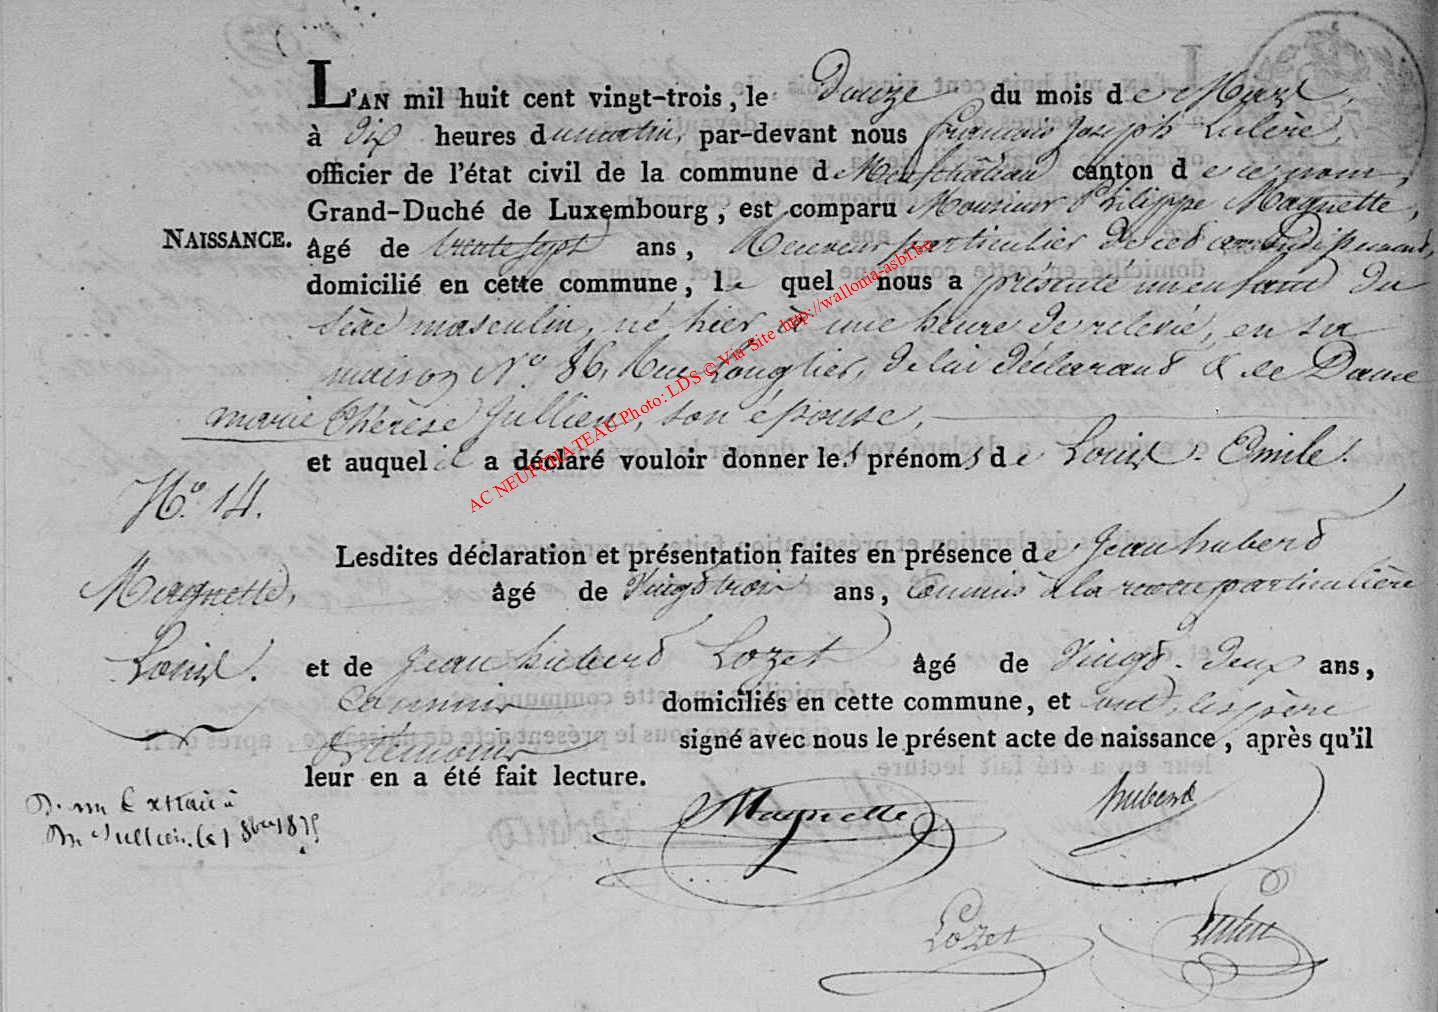 L'AN mil huit cent vingt-trois, le Douze du mois de Mars,
à dix heures du matin, par-devant nous François Joseph
officier de l'état civil de la commune de Neufchâteau canton de ce nom,
Grand-Duché de Luxembourg, est comparu Monsieur Philippe Magnette,
NAISSANCE.
âgé de trente sept ans, Receveur particulier de cet arrondissement,
domicilié en cette commune, le quel nous a présenté un enfant du
sèxe masculin, né hier à une heure de relevée, en sa
maison N.º 86, Rue Longlier, de lui déclarant & de Dame
marie thérèse Jullien, son épouse,
et auquel il a déclaré vouloir donner les prénoms de Louis Emile.
N.º 14.
Magnette,
Louis.
Lesdites déclaration et présentation faites en présence de Jean huberd
âgé de Vingt trois ans, Commis à la particulière
et de Jean huberd Lozet âgé de Vingt-deux ans,
Commis domiciliés en cette commune, et ont, les père
& témoins signé avec nous le présent acte de naissance, après qu'il
leur en a été fait lecture.
D. un Extrait à
Mr Jullien, le 1 8bre 1875
Magnette
huberd
Lozet
AC NEUFCHATEAU Photo: LDS © Via Site http://wallonia-asbl.be